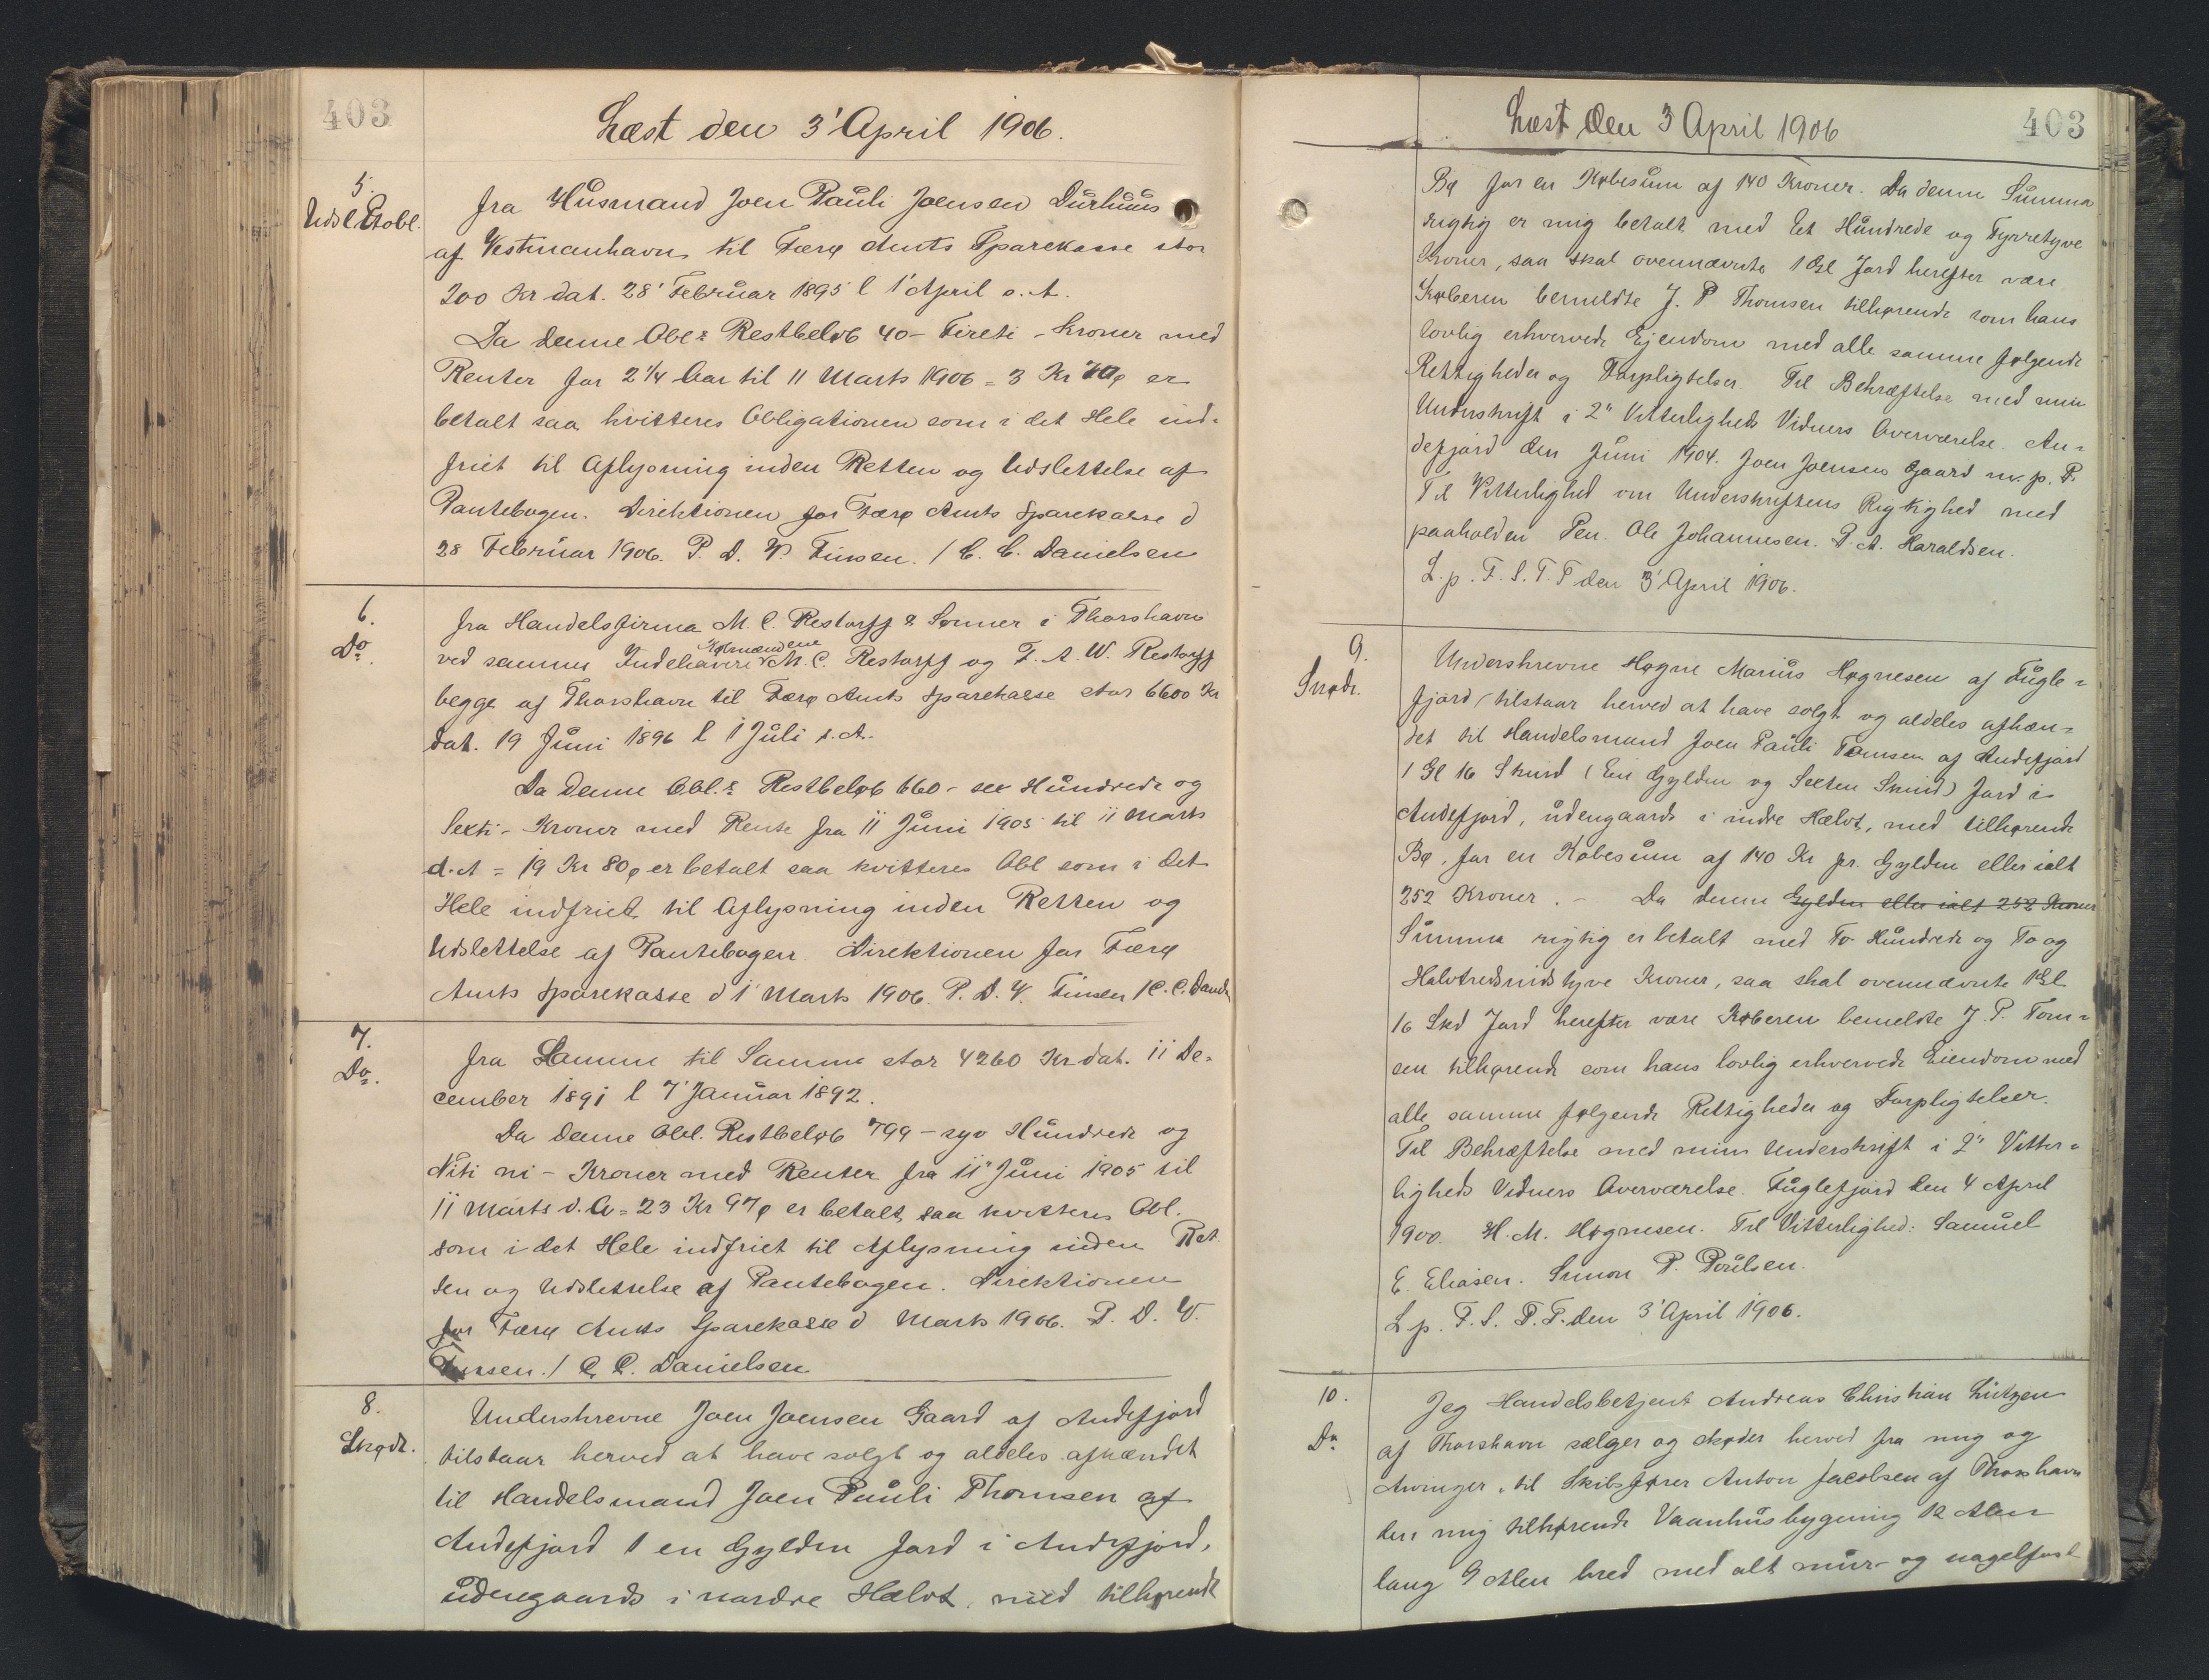 403
Læst den 3' April 1906.
5.
Udsl. Pobl.
fra Husmand Joen Pauli Joensen Durhuus
af Vestmanhavn til Færø Amts Sparekasse stor
200 Kr dat. 28' Februar 1895 l 1' April s. A.
Da denne Obl:s Restbeløb 40 - Fireti - Kroner med
Renter for 2 1/4 Aar til 11 Marts 1906 = 3 Kr 70 ø er
betalt saa kvitteres Obligationen som i det Hele ind-
friet til Aflysning inden Retten og Udslettelse af
Pantebogen. Direktionen for Færø Amts Sparekasse d
28 Februar 1906. P. D. V. Finsen. / C. C. Danielsen
6.
Do.
fra Handelsfirma M. C. Restorff & Sønner i Thorshavn
ved sammes Indehavere Købmændene M. C. Restorff og F. A. W. Restorff
begge af Thorshavn til Færø Amts Sparekasse stor 6600 Kr
dat. 19 Juni 1896 l 1 Juli s. A.
Da denne Obl.s Restbeløb 660 - sex Hundrede og
Sexti - Kroner med Rente fra 11 Juni 1905 til 11 Marts
d. A = 19 Kr 80 ø er betalt saa kvitteres Obl som i det
Hele indfriet til Aflysning inden Retten og
Udslettelse af Pantebogen. Direktionen for Færø
Amts Sparekasse d 1' Marts 1906. P. D. V. Finsen / C. C. Daniels
7.
Do.
fra Samme til Samme stor 4260 Kr dat. 11 De-
cember 1891 l 7' Januar 1892.
Da denne Obl. Restbeløb 799 - syv Hundrede og
Niti ni - Kroner med Renter fra 11' Juni 1905 til
11 Marts d. A = 23 Kr 97 ø er betalt, saa kvitteres Obl.
som i det Hele indfriet til Aflysning inden Ret
ten og Udslettelse af Pantebogen. Direktionen
for Færø Amts Sparekasse d Marts 1906. P. D. V.
Finsen. / C. C. Danielsen
8.
Skøde.
Underskrevne Joen Joensen Gaard af Andefjord
tilstaar herved at have solgt og aldeles afhændet
til Handelsmand Joen Pauli Thomsen af
Andefjord 1 en Gylden Jord i Andefjord,
udengaards i nordre Hælvt, med tilhørende
Læst den 3 April 1906
403
Bø for en Købesum af 140 Kroner. Da denne Summa
rigtig er mig betalt med Et Hundrede og Fyrretyve
Kroner, saa skal ovennævnte 1 Gl Jord herefter være
Køberen bemeldte J. P Thomsen tilhørende som hans
lovlig erhvervede Ejendom med alle samme følgende
Rettigheder og Forpligtelser. Til Bekræftelse med min
Underskrift i 2" Vitterligheds Vidners Overværelse. An-
defjord den Juni 1904. Joen Joensen Gaard m. p. P.
Til Vitterlighed om Underskriftens Rigtighed med
paaholden Pen. Ole Johannesen. P. A. Haraldsen.
L. p. F. S. T. P den 3' April 1906.
9.
Skøde.
Underskrevne Høgne Marius Høgnesen af Fugle-
fjord tilstaar herved at have solgt og aldeles afhæn-
det til Handelsmand Joen Pauli Tomsen af Andefjord
1 Gl 16 Skind (Een Gylden og Sexten Skind) Jord i
Andefjord, udengaards i indre Hælvt, med tilhørende
Bø, for en Købesum af 140 Kr pr. Gylden eller ialt
252 Kroner. - Da denne Gylden eller ialt 252 Kroner
Summa rigtig er betalt med To Hundrede og To og
Halvtredsindstyve Kroner, saa skal ovennævnte 1 Gl
16 Skd Jord herefter være Køberen bemeldte J. P. Tom-
sen tilhørende som hans lovlig erhvervede Eiendom med
alle samme følgende Rettigheder og Forpligtelser.
Til Bekræftelse med min Underskrift i 2" Vitter-
ligheds Vidners Overværelse. Fuglefjord den 4 April
1900. H. M. Høgnesen. Til Vitterlighed: Samuel
E. Eliasen. Simon P. Poulsen.
L p. F. S. T. P. den 3' April 1906.
10.
Do
Jeg Handelsbetjent Andreas Christian Lützen
af Thorshavn sælger og skøder herved fra mig og
Arvinger, til Skibsfører Anton Jacobsen af Thorshavn
den mig tilhørende Vaanhusbygning 12 Alen
lang 9 Alen bred med alt mur- og nagelfast